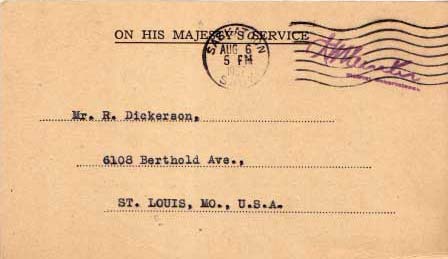 ON HIS MAJESTY'S SERVICE
SASKATOON
AUG 6
5 PM
Mr. R. Dickerson,
6108 Berthold Ave.,
ST. LOUIS, MO., U.S.A.